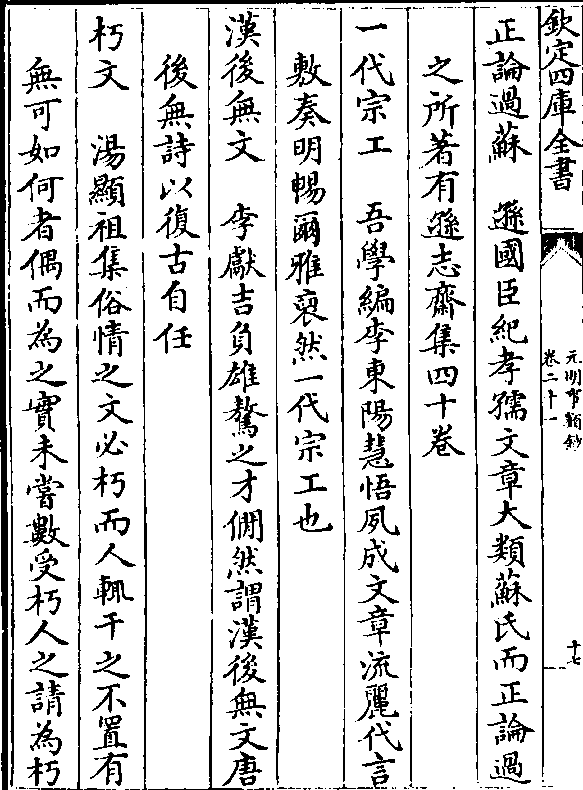 欽定四庫全書
元明事類鈔
卷二十一
十七
正論過蘇　遜國臣紀孝孺文章大類蘇氏而正論過
之所著有遜志齋集四十卷
一代宗工　吾學編李東陽慧悟夙成文章流麗代言
敷奏明暢爾雅裒然一代宗工也
漢後無文　李獻吉負雄驁之才僩然謂漢後無文唐
後無詩以復古自任
朽文　湯顯祖集俗情之文必朽而人輒干之不置有
無可如何者偶而為之實未嘗數受朽人之請為朽